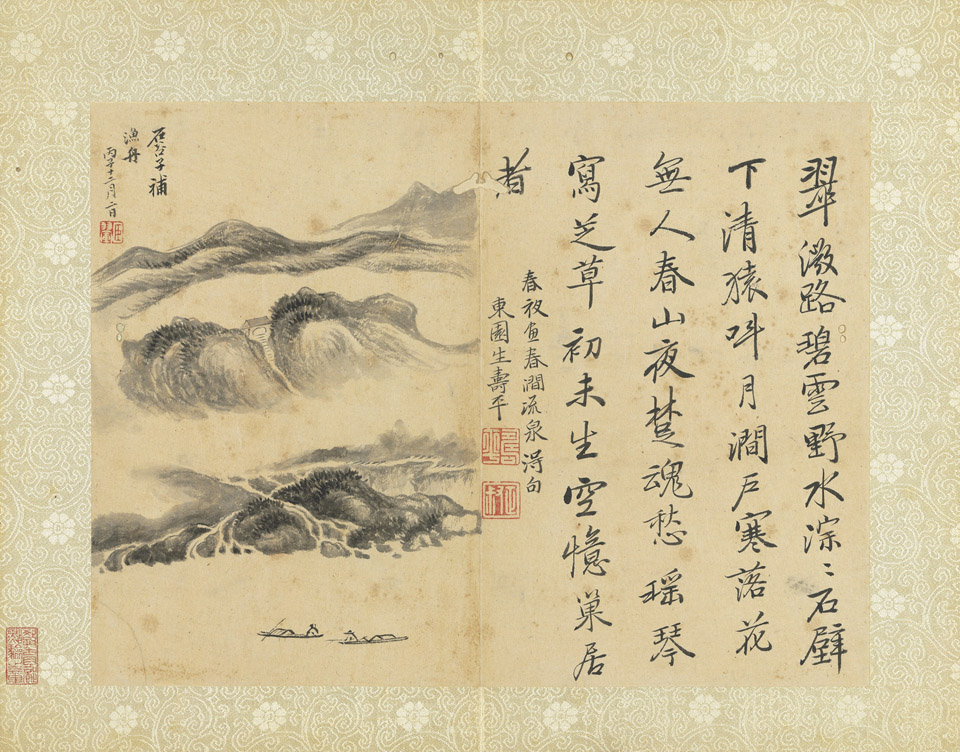 翠微路碧雲野水淙〻石壁
下清猿叫月澗戶寒落花
無人春山夜楚魂愁瑶琴
寫芝草初未生空憶巢居
者
春夜画春澗流泉淂句
東園生壽平
石谷子補
漁舟
丙子十二月二日